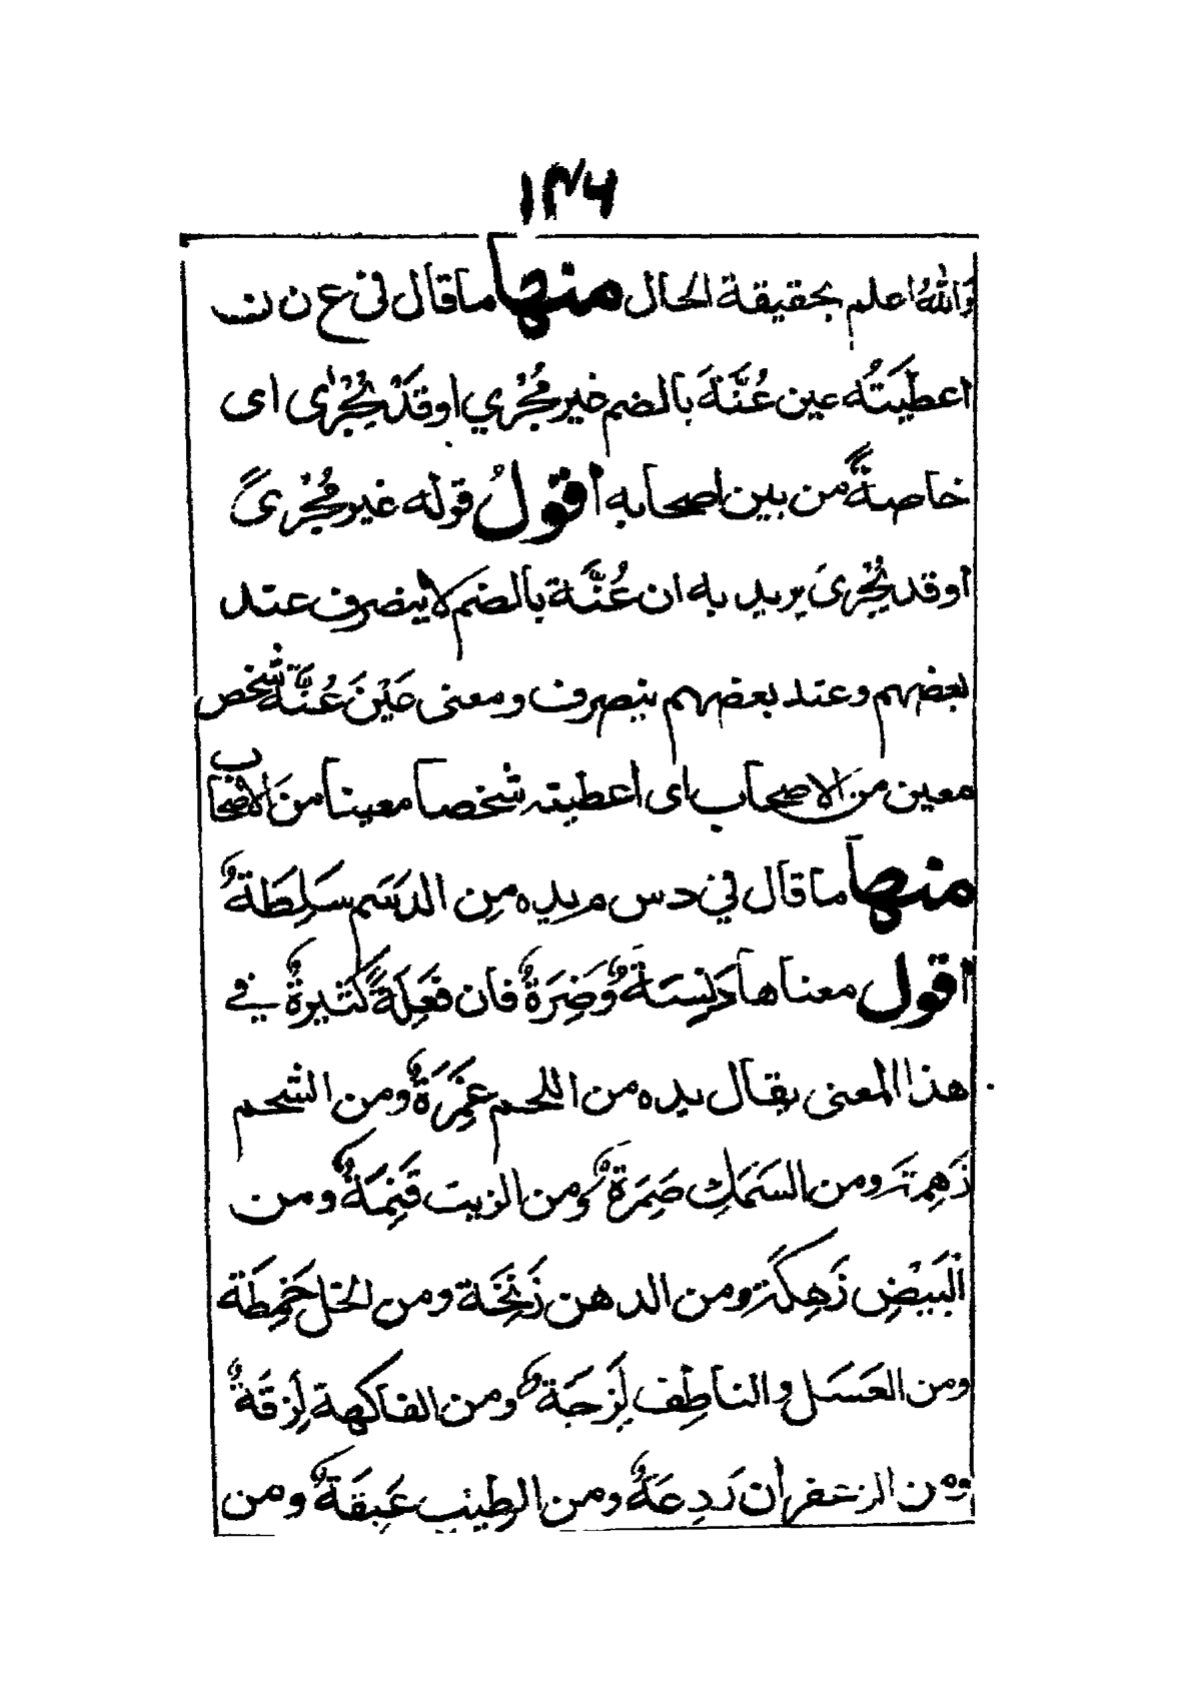 ١٣٦
وَاللهُ اعلم بحقيقة الحال منها ما قال في ع ن ن
اعطيَتُه عين عُنَّةَ بالضم غير مُجْرىٍ اوقَدْ يُجْرٰى اى
خاصةً من بين اصحابه اقولُ قوله غير مُجْرىً
اوقد يُجْرىَ يريد به ان عُنَّة بالضم لا ينصرف عند
بعضهم وعند بعضهم ينصرف ومعنى عَيْنَ عُنَّة شخص
معين من الاصحاب اى اعطيته شخصا معينا من الاصحاب
منها ما قال في د س م يده مِن الدسَم سَلِطَةٌ
اقول معناها دَنِسَةٌ وَضِرَةٌ فان فَعِلَةً كثيرةٌ في
هذا المعنى يقال يده من اللحم غَمِرَةٌ ومن الشحم
زَهِمَة ومن السَمَكِ صَمِرَةٌ ومن الزيت قَنِمَةٌ ومن
البَيْضِ زَهِكَة ومن الدهن زَنِخَة ومن الخل خَمِطَة
ومن العَسَل والناطِف لَزِجَةٌ ومن الفاكهة لَزِقَةٌ
ومن الزعفران رَدِعَةٌ ومن الطِيْب عَبِقَةٌ ومن